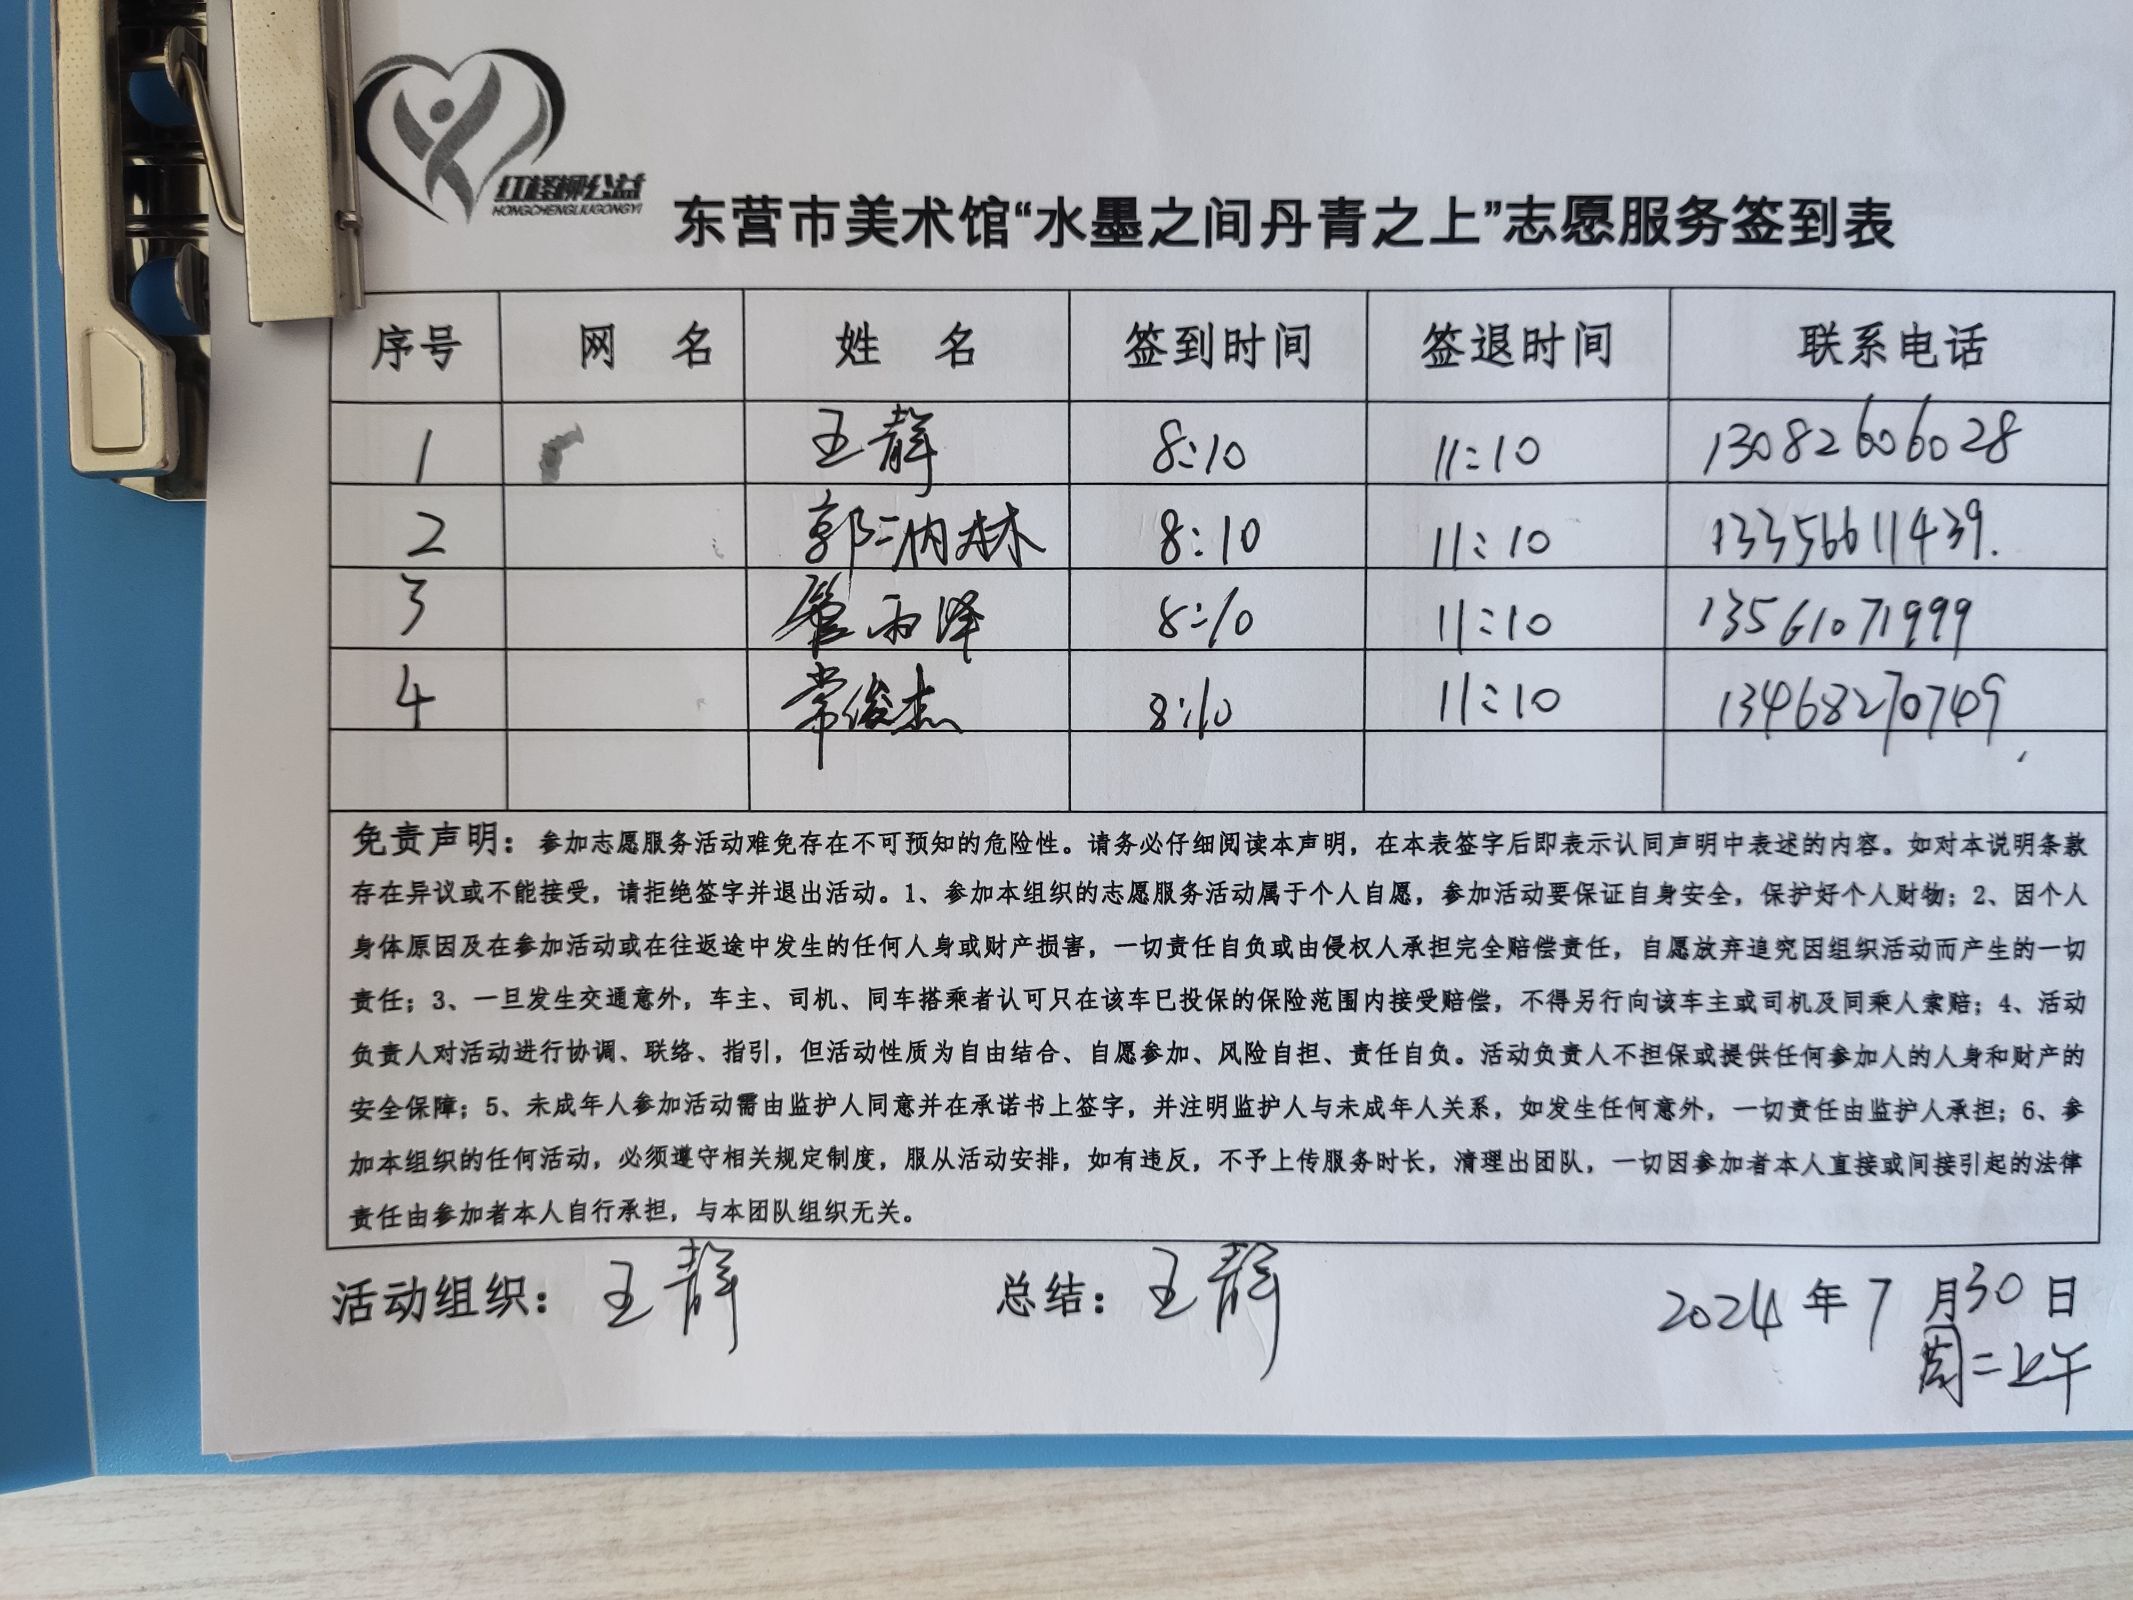 红柽柳公益
HONGCHENGLIUGONGYI
东营市美术馆“水墨之间丹青之上”志愿服务签到表
序号 网 名 姓 名 签到时间 签退时间 联系电话
1 王静 8:10 11:10 13082606028
2 郭 林 8:10 11:10 13356611439.
3 管雨泽 8:10 11:10 13561071999
4 常俊杰 8:10 11:10 13468270749
免责声明：参加志愿服务活动难免存在不可预知的危险性。请务必仔细阅读本声明，在本表签字后即表示认同声明中表述的内容。如对本说明条款
存在异议或不能接受，请拒绝签字并退出活动。1、参加本组织的志愿服务活动属于个人自愿，参加活动要保证自身安全，保护好个人财物；2、因个人
身体原因及在参加活动或在往返途中发生的任何人身或财产损害，一切责任自负或由侵权人承担完全赔偿责任，自愿放弃追究因组织活动而产生的一切
责任；3、一旦发生交通意外，车主、司机、同车搭乘者认可只在该车已投保的保险范围内接受赔偿，不得另行向该车主或司机及同乘人索赔；4、活动
负责人对活动进行协调、联络、指引，但活动性质为自由结合、自愿参加、风险自担、责任自负。活动负责人不担保或提供任何参加人的人身和财产的
安全保障；5、未成年人参加活动需由监护人同意并在承诺书上签字，并注明监护人与未成年人关系，如发生任何意外，一切责任由监护人承担；6、参
加本组织的任何活动，必须遵守相关规定制度，服从活动安排，如有违反，不予上传服务时长，清理出团队，一切因参加者本人直接或间接引起的法律
责任由参加者本人自行承担，与本团队组织无关。
活动组织：王静 总结：王静 2024年7月30日
周二上午